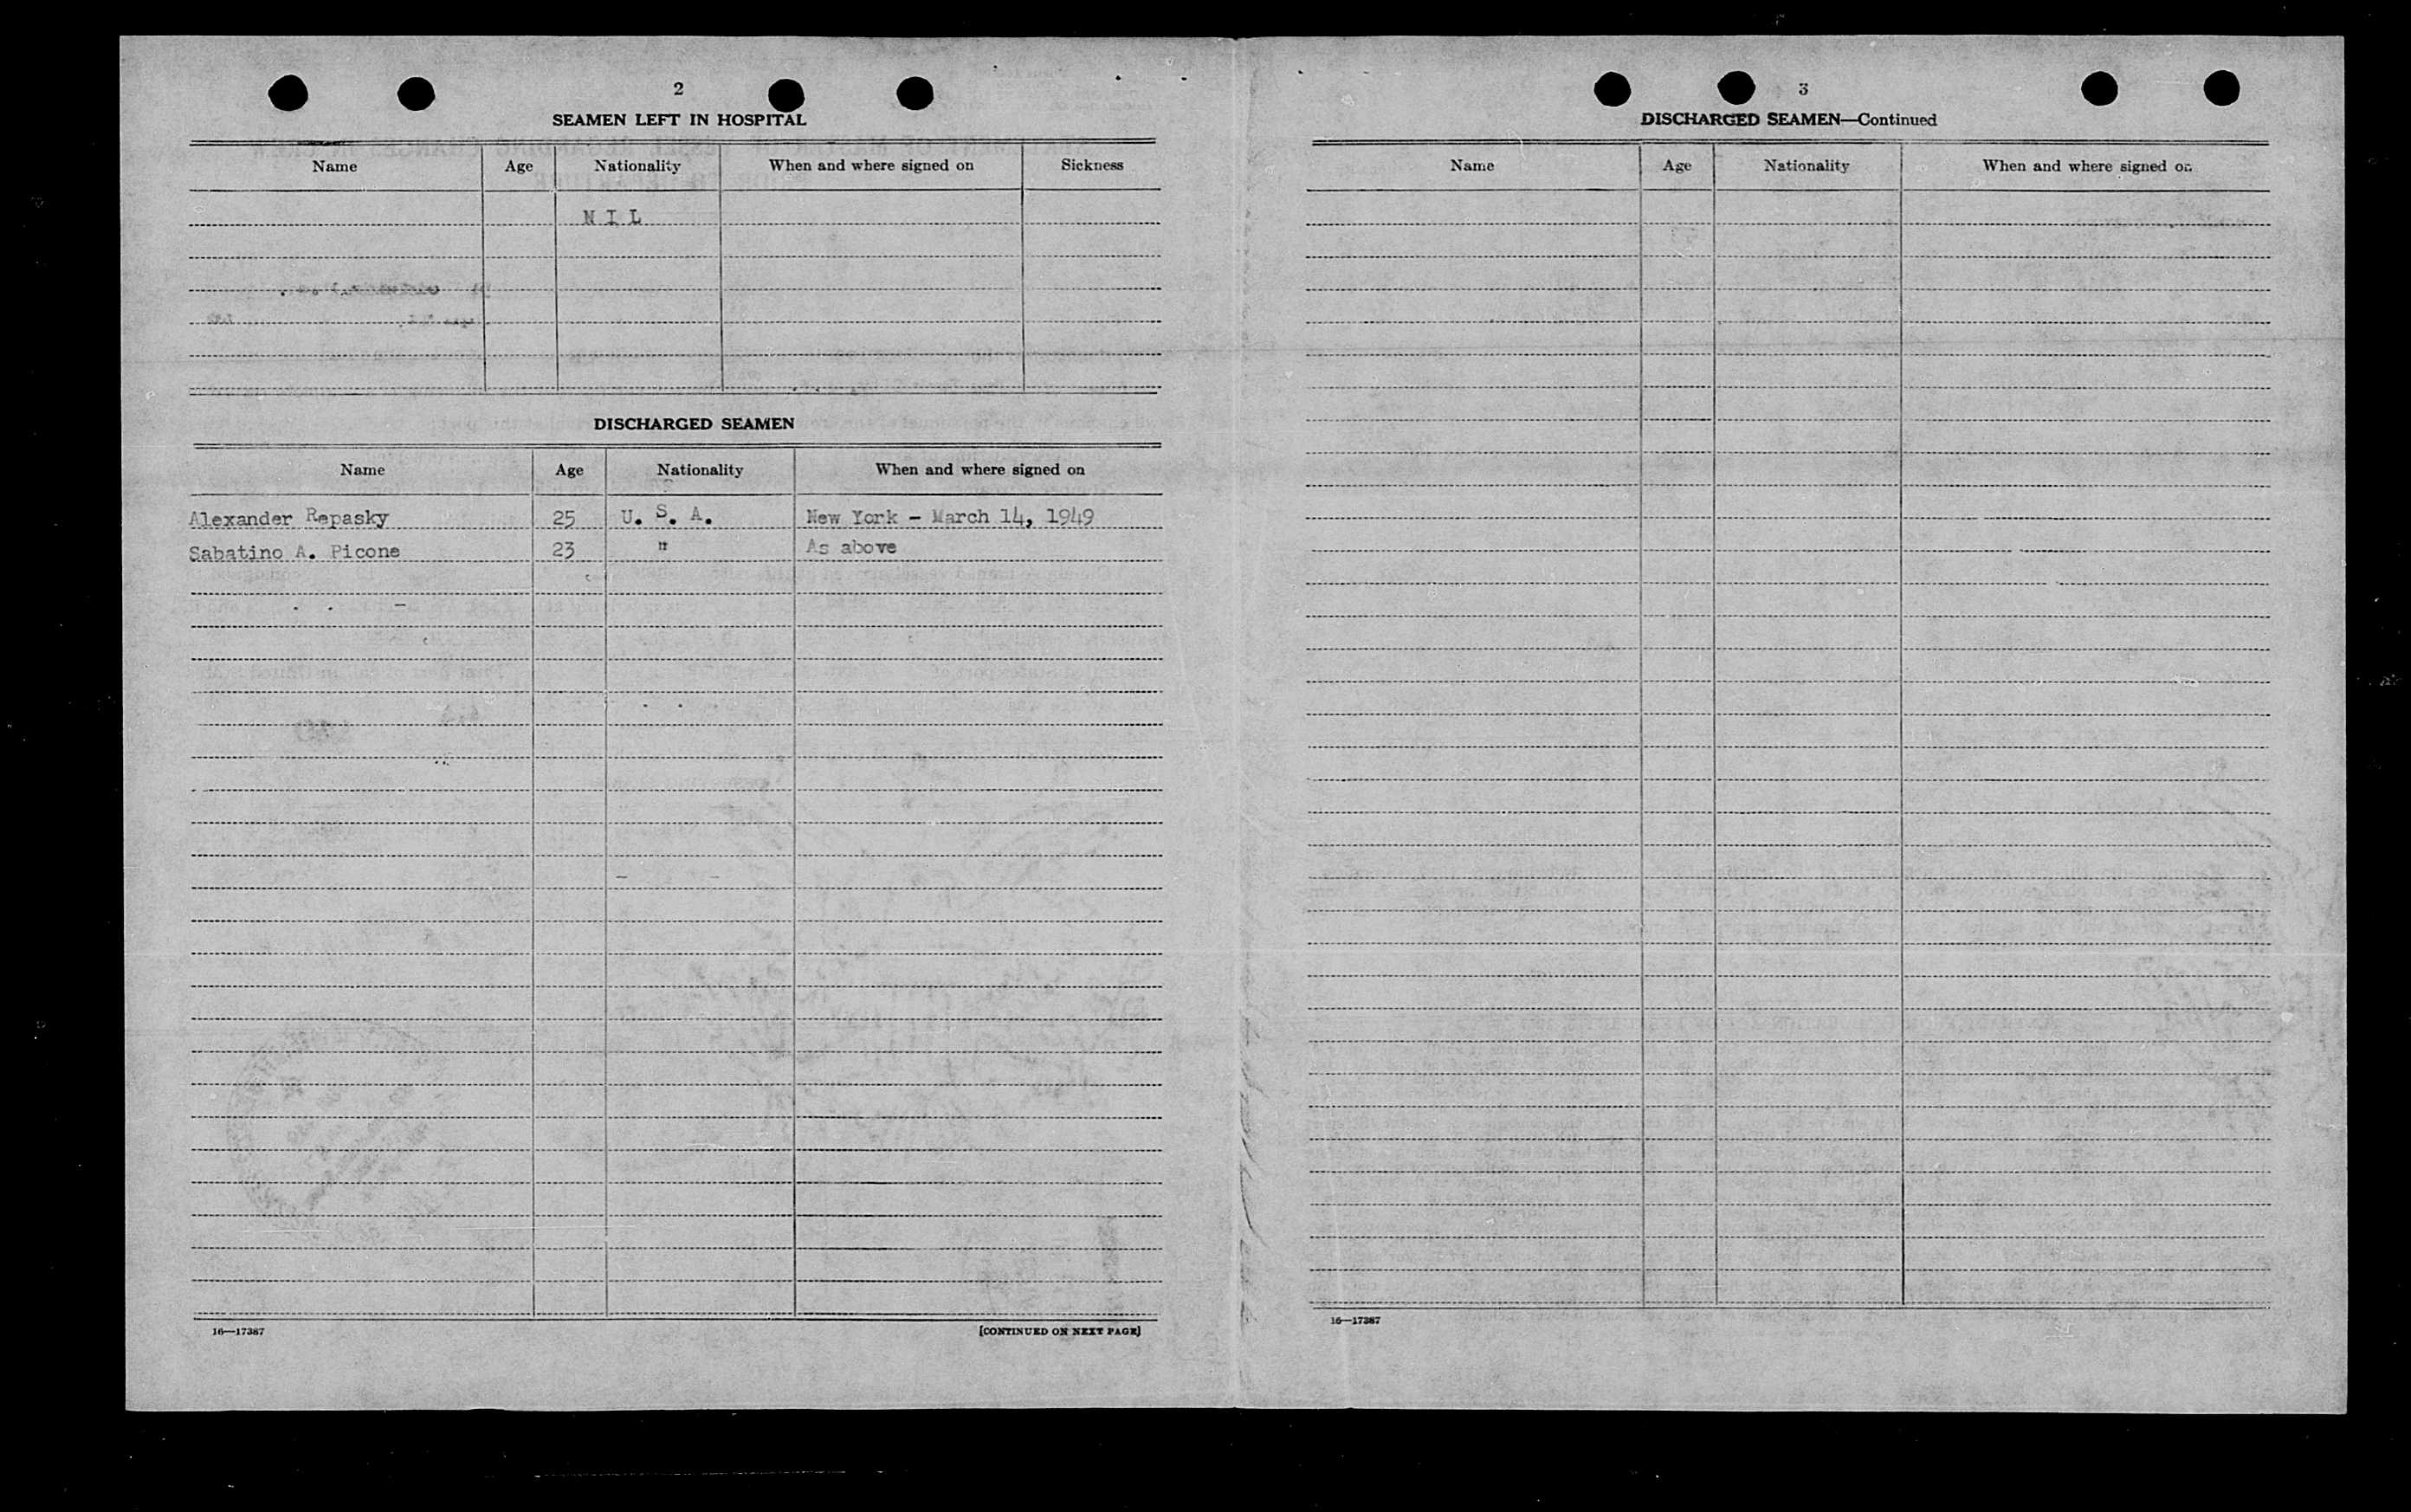 2
SEAMEN LEFT IN HOSPITAL
Name Age Nationality When and where signed on Sickness
N I L
DISCHARGED SEAMEN
Name Age Nationality When and where signed on
Alexander Repasky 25 U. S. A. New York - March 14, 1949
Sabatino A. Picone 23 " As above
16—17387 [CONTINUED ON NEXT PAGE]
3
DISCHARGED SEAMEN—Continued
Name Age Nationality When and where signed on
16—17387